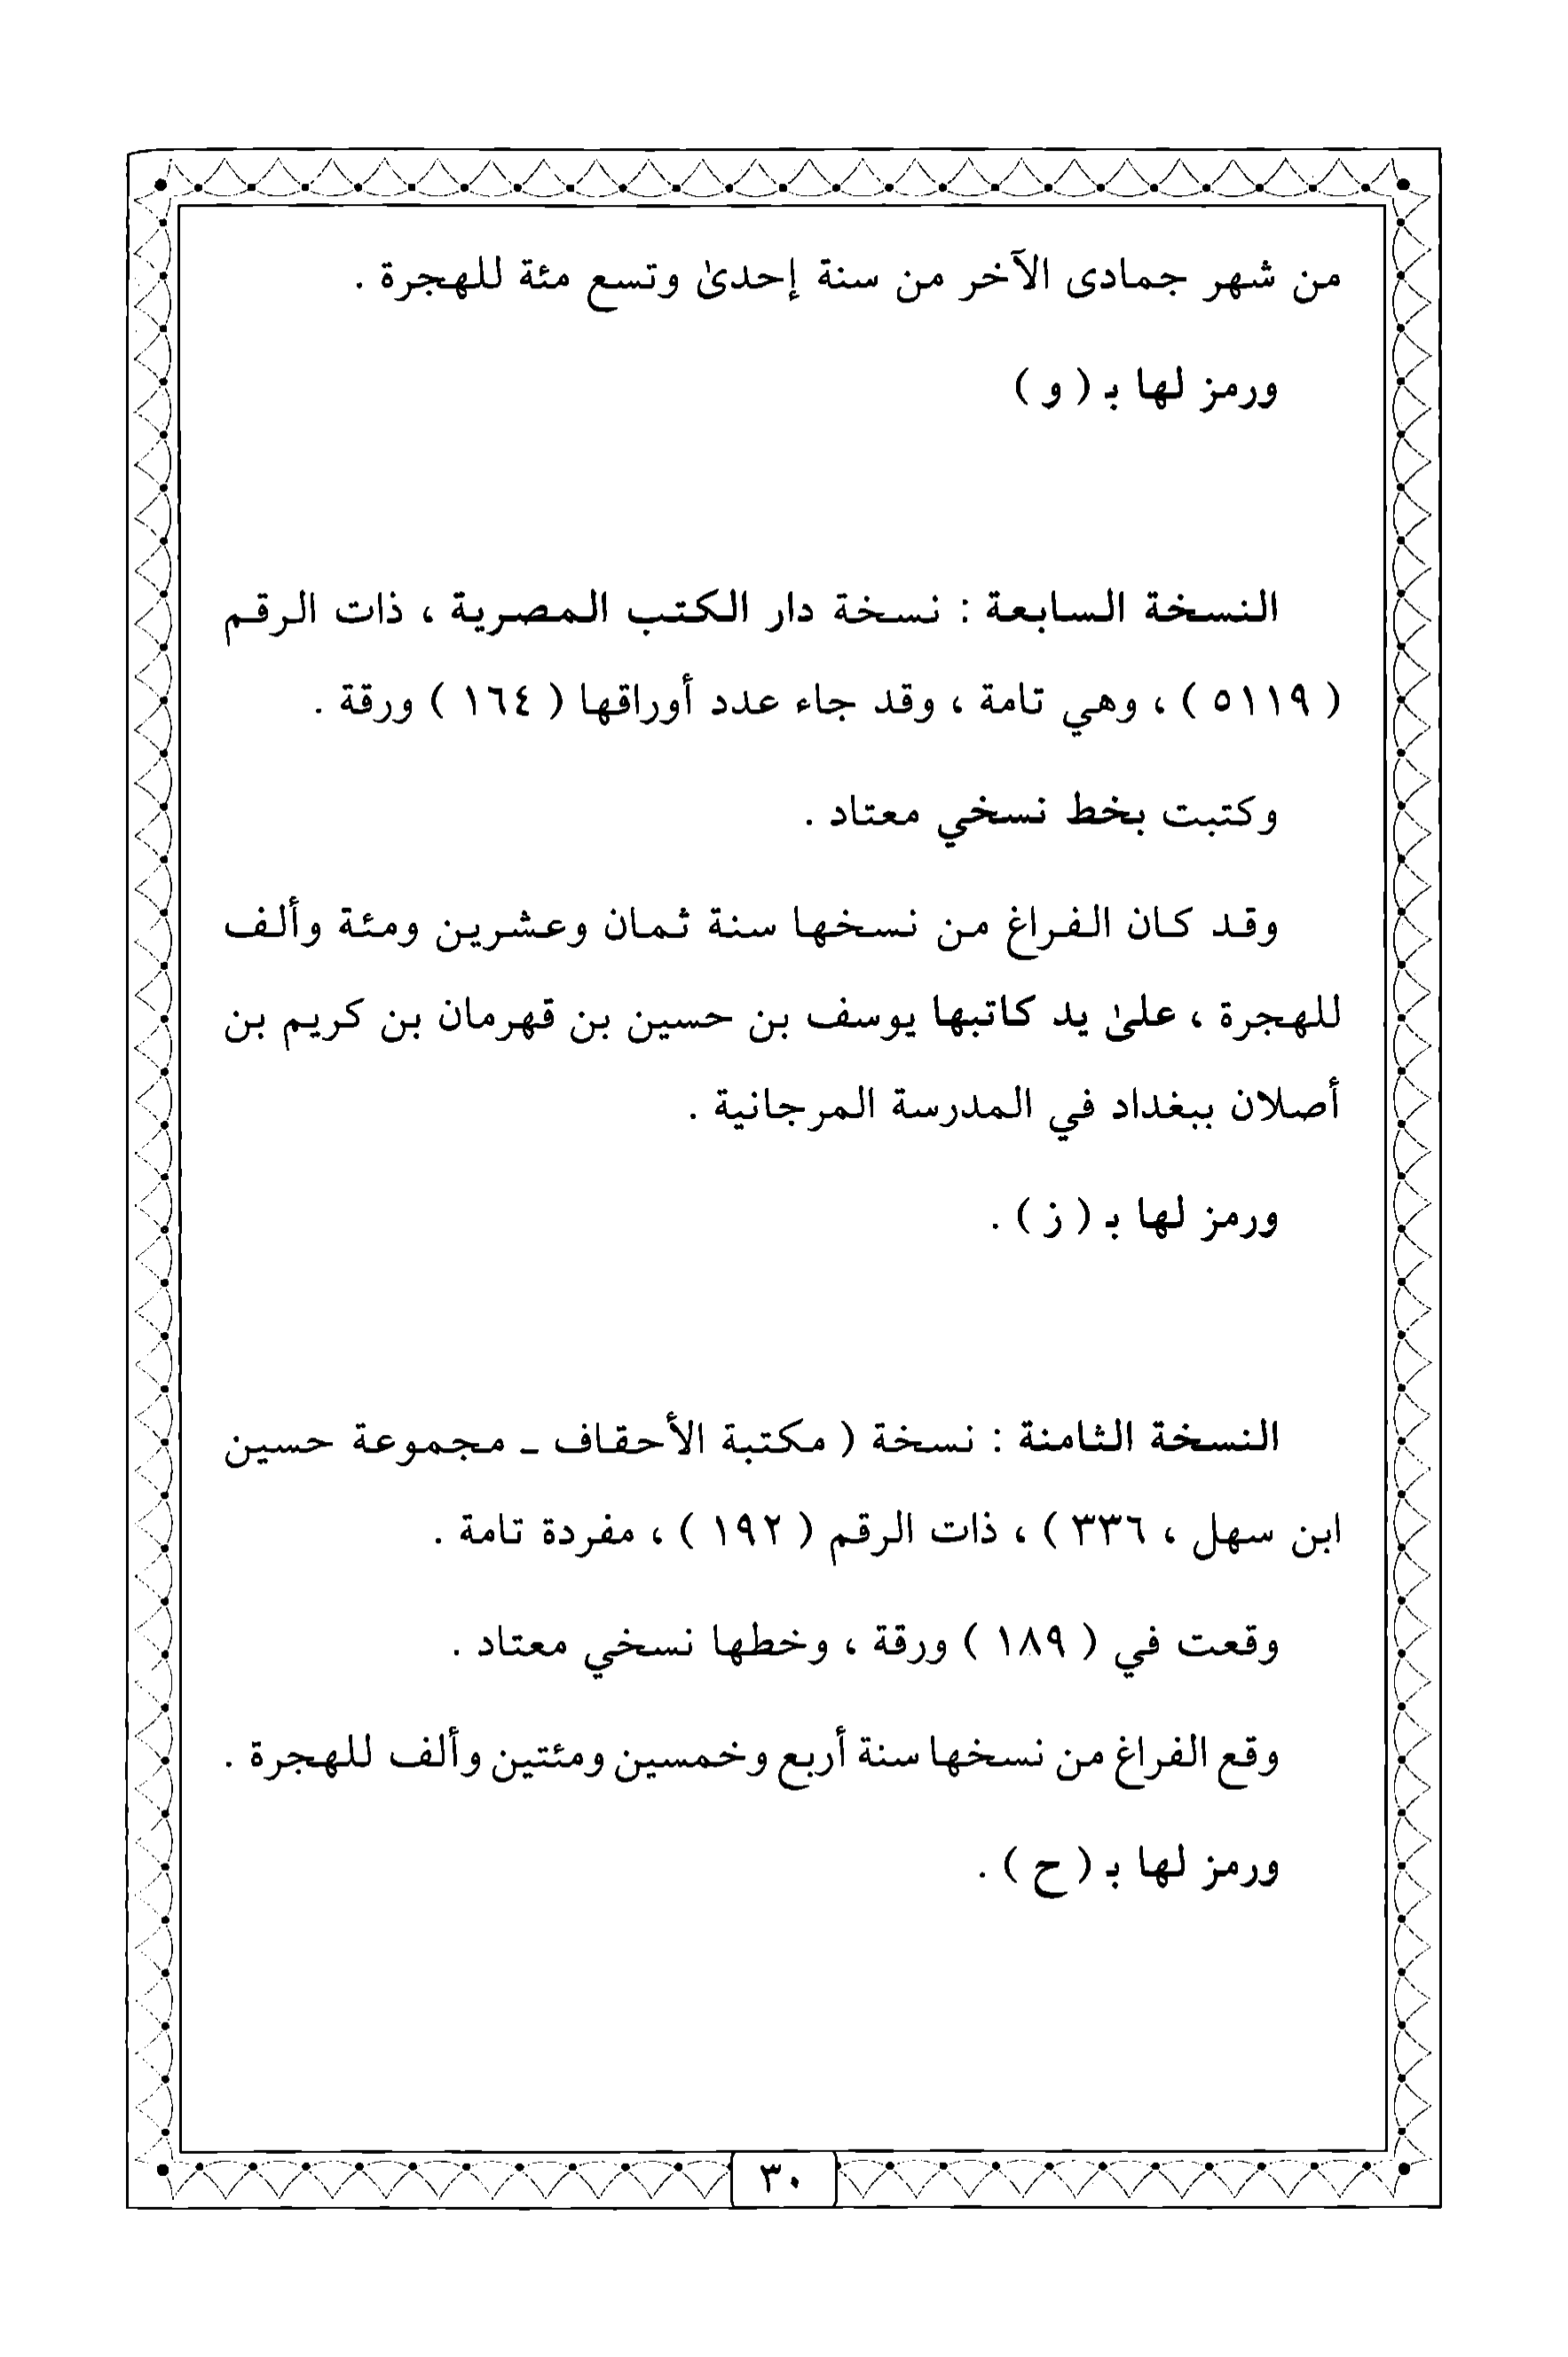 من شهر جمادى الآخر من سنة إحدىٰ وتسع مئة للهجرة .
ورمز لها بـ ( و )
النسخة السابعة : نسخة دار الكتب المصرية ، ذات الرقم
( ٥١١٩ ) ، وهي تامة ، وقد جاء عدد أوراقها ( ١٦٤ ) ورقة .
وكتبت بخط نسخي معتاد .
وقد كان الفراغ من نسخها سنة ثمان وعشرين ومئة وألف
للهجرة ، علىٰ يد كاتبها يوسف بن حسين بن قهرمان بن كريم بن
أصلان ببغداد في المدرسة المرجانية .
ورمز لها بـ ( ز ) .
النسخة الثامنة : نسخة ( مكتبة الأحقاف ـ مجموعة حسين
ابن سهل ، ٣٣٦ ) ، ذات الرقم ( ١٩٢ ) ، مفردة تامة .
وقعت في ( ١٨٩ ) ورقة ، وخطها نسخي معتاد .
وقع الفراغ من نسخها سنة أربع وخمسين ومئتين وألف للهجرة .
ورمز لها بـ ( ح ) .
٣٠